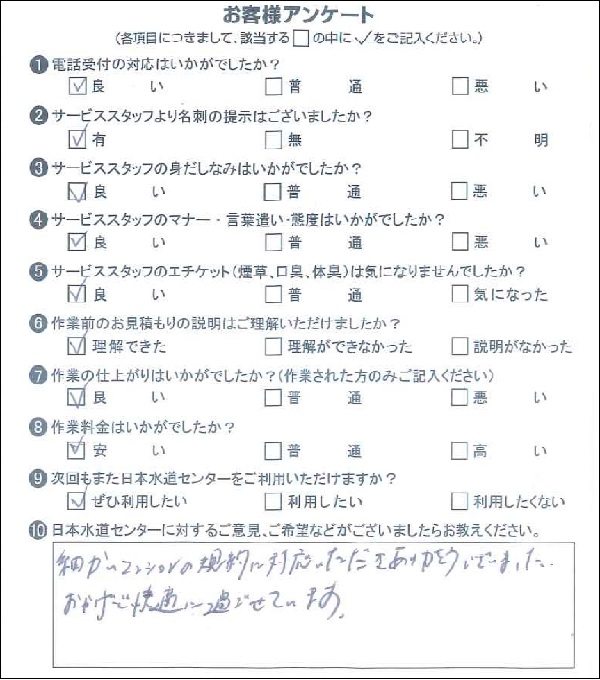 お客様アンケート
(各項目につきまして、該当する□の中に✓をご記入ください。)
❶電話受付の対応はいかがでしたか?
☑良い □普通 □悪い
❷サービススタッフより名刺の提示はございましたか?
☑有 □無 □不明
❸サービススタッフの身だしなみはいかがでしたか?
☑良い □普通 □悪い
❹サービススタッフのマナー・言葉遣い・態度はいかがでしたか?
☑良い □普通 □悪い
❺サービススタッフのエチケット(煙草、口臭、体臭)は気になりませんでしたか?
☑良い □普通 □気になった
❻作業前のお見積もりの説明はご理解いただけましたか?
☑理解できた □理解ができなかった □説明がなかった
❼作業の仕上がりはいかがでしたか?(作業された方のみご記入ください)
☑良い □普通 □悪い
❽作業料金はいかがでしたか?
☑安い □普通 □高い
❾次回もまた日本水道センターをご利用いただけますか?
☑ぜひ利用したい □利用したい □利用したくない
❿日本水道センターに対するご意見、ご希望などがございましたらお教えください。
細かいマンションの規約に対応いただきありがとうございました。
おかげで快適に過ごせています。